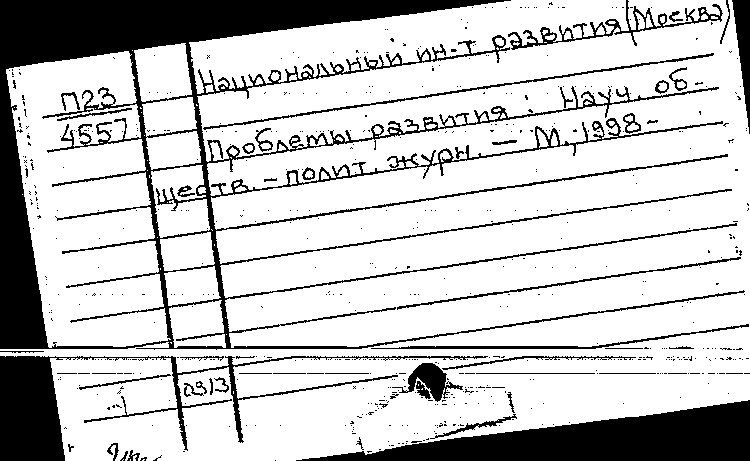 П23
4557
Национальный ин-т развития (Москва)
Проблемы развития : Науч. об-
ществ. - полит. журн. — М., 1998-
0313